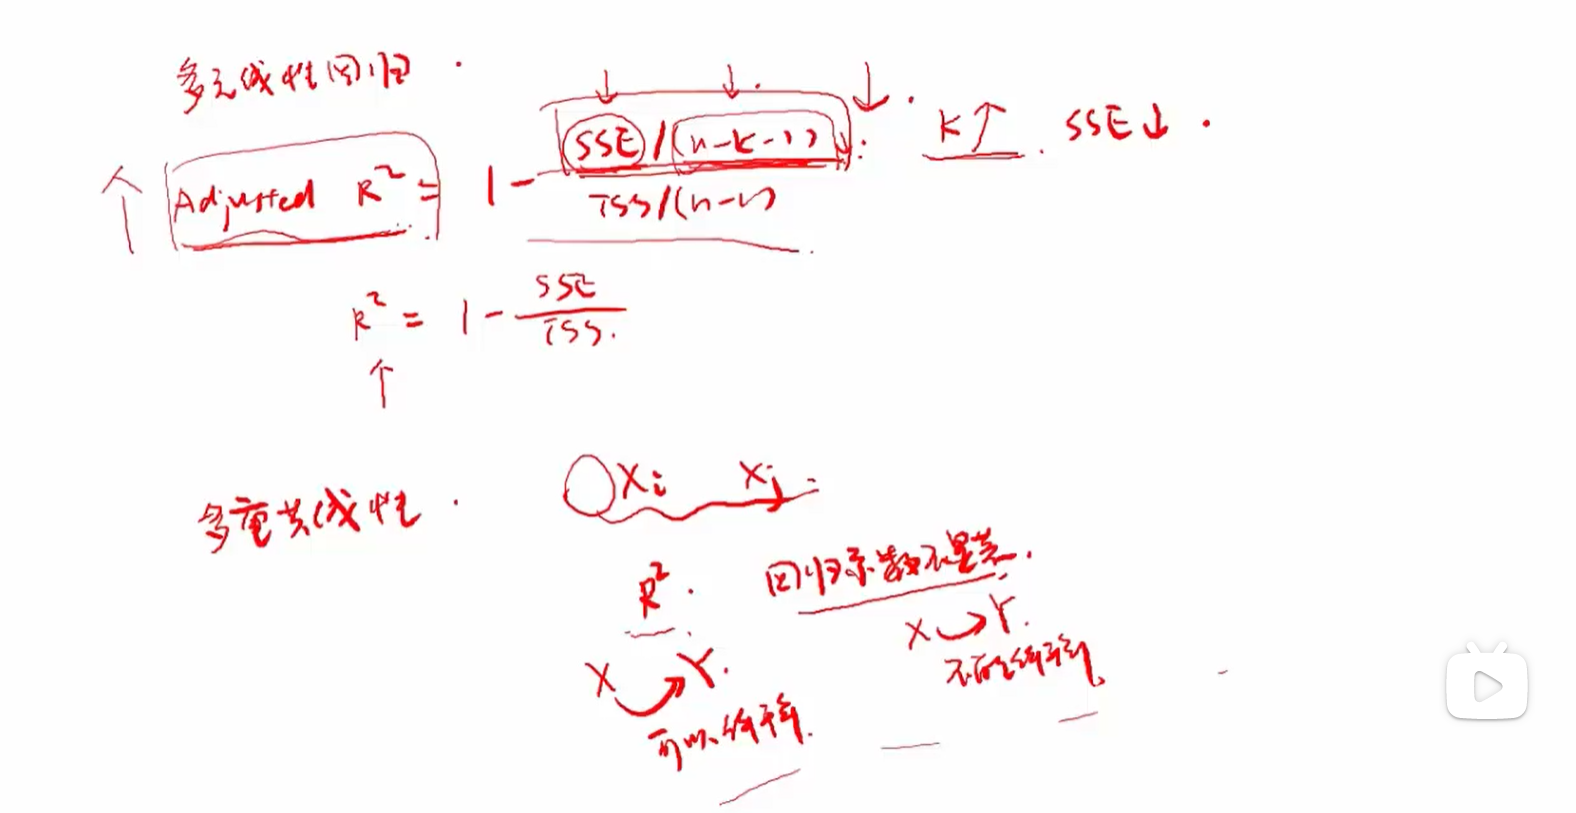 多元线性回归.
Adjusted R² = 1 - SSE/(n-k-1) / TSS/(n-1)
K↑ . SSE↓ .
R² = 1 - SSE / TSS.
多重共线性 .
Xi Xj
R² . 回归系数不显著.
X Y. X Y.
可以解释. 不能解释.